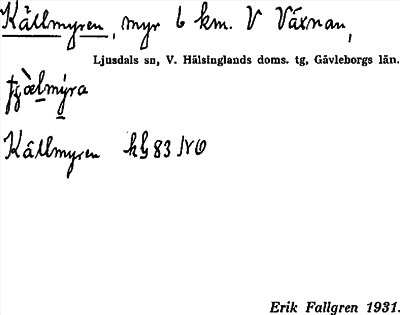 Källmyren, myr 6 km. V Växnan,
Ljusdals sn, V. Hälsinglands doms. tg, Gävleborgs län.
Källmyren kbl 83 NO
Erik Fallgren 1931.